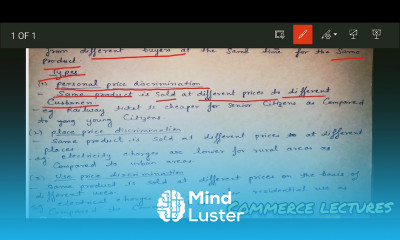 1 OF 1
from different buyers at the Same time for the Same
Product
Types
(1) personal price discrimination
- Same product is Sold at different prices to different
Customer.
eg. Railway ticket is cheaper for Senior Citizens as Compared
to young Citizens
(2) place price discrimination
- Same product is Sold at different prices to at different
places
eg electricity charges are lower for rural areas as
Compared to urban areas
(3) Use price discrimination
same product is sold at different prices on the basis of
different uses.
eg electrical charges residential use as
Compared to
Mind
Luster
COMMERCE LECTURES